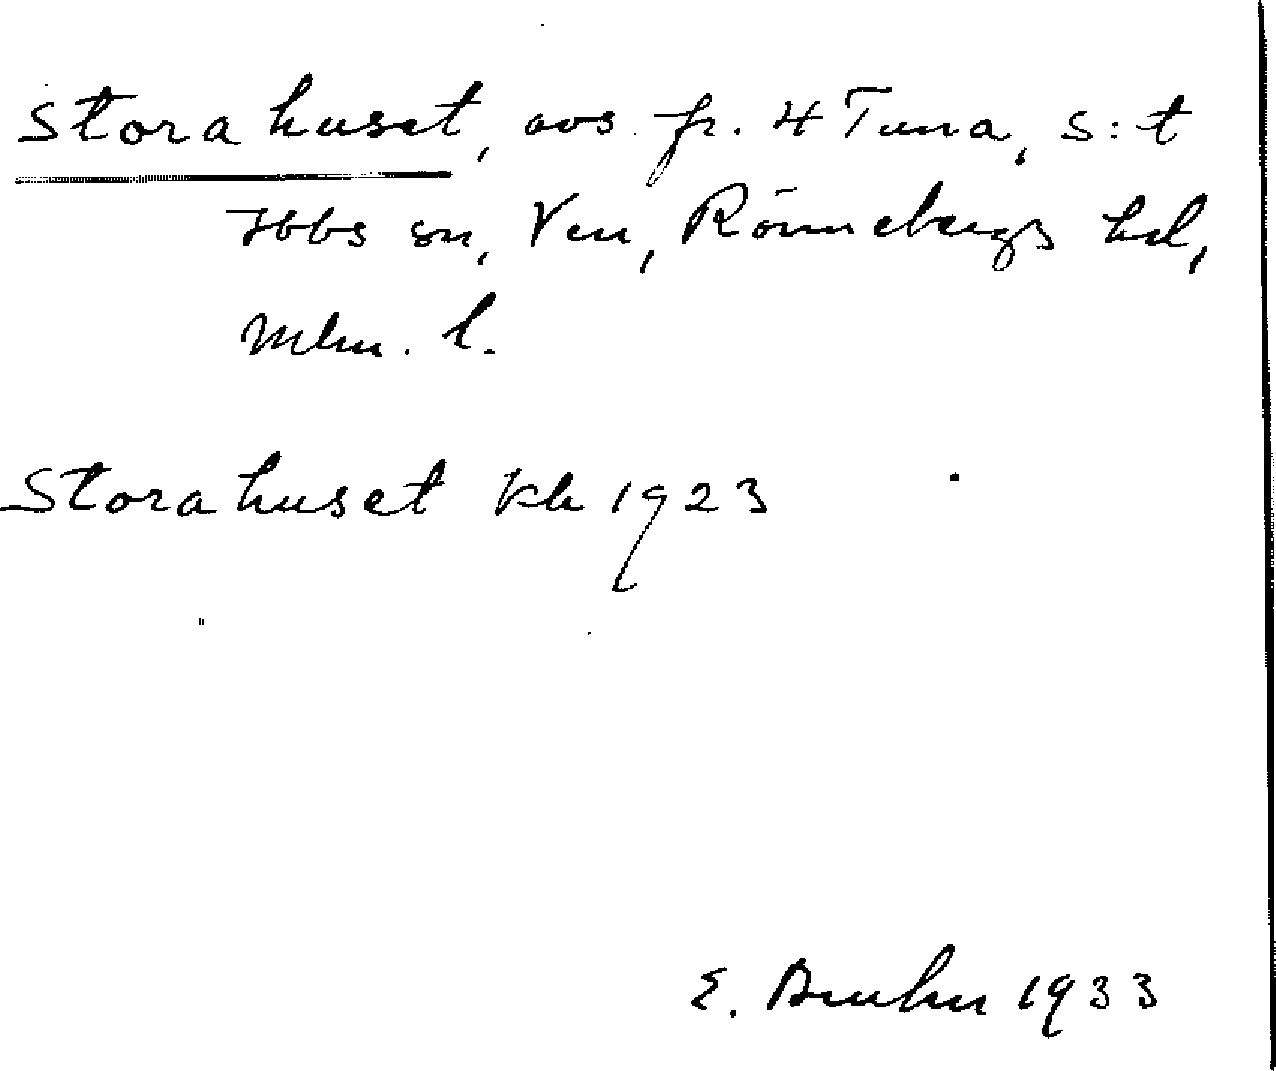 Storahuset, avs. fr. 4 Tuna, S:t
Ibbs sn, Ven, Rönnebergs hd,
Mlm. l.
Storahuset kb 1923
E. Bruhn 1933